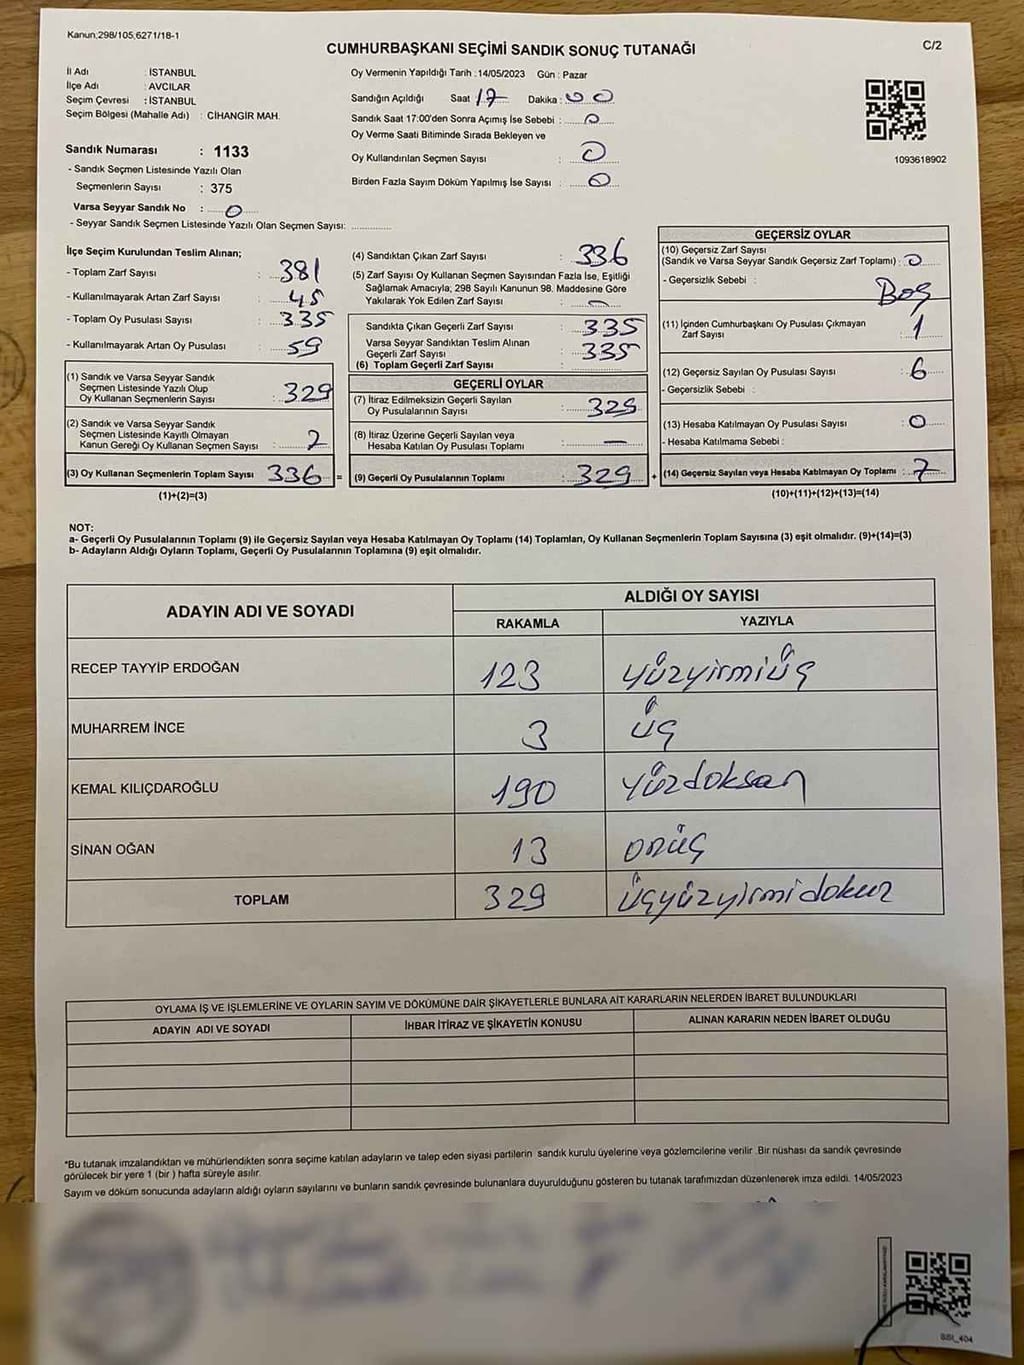 Kanun;298/105,6271/18-1
C/2
CUMHURBAŞKANI SEÇİMİ SANDIK SONUÇ TUTANAĞI
İl Adı : İSTANBUL
İlçe Adı : AVCILAR
Seçim Çevresi : İSTANBUL
Seçim Bölgesi (Mahalle Adı) : CİHANGİR MAH.
Sandık Numarası : 1133
- Sandık Seçmen Listesinde Yazılı Olan
Seçmenlerin Sayısı : 375
Varsa Seyyar Sandık No : 0
- Seyyar Sandık Seçmen Listesinde Yazılı Olan Seçmen Sayısı:
Oy Vermenin Yapıldığı Tarih : 14/05/2023 Gün : Pazar
Sandığın Açıldığı Saat 17 Dakika : 00
Sandık Saat 17:00'den Sonra Açımış İse Sebebi : 0
Oy Verme Saati Bitiminde Sırada Bekleyen ve
Oy Kullandırılan Seçmen Sayısı : 0
Birden Fazla Sayım Döküm Yapılmış İse Sayısı : 0
1093618902
İlçe Seçim Kurulundan Teslim Alınan;
- Toplam Zarf Sayısı : 381
- Kullanılmayarak Artan Zarf Sayısı : 45
- Toplam Oy Pusulası Sayısı : 335
- Kullanılmayarak Artan Oy Pusulası : 59
(1) Sandık ve Varsa Seyyar Sandık
Seçmen Listesinde Yazılı Olup
Oy Kullanan Seçmenlerin Sayısı : 329
(2) Sandık ve Varsa Seyyar Sandık
Seçmen Listesinde Kayıtlı Olmayan
Kanun Gereği Oy Kullanan Seçmen Sayısı : 2
(3) Oy Kullanan Seçmenlerin Toplam Sayısı 336 =
(1)+(2)=(3)
(4) Sandıktan Çıkan Zarf Sayısı : 336
(5) Zarf Sayısı Oy Kullanan Seçmen Sayısından Fazla İse, Eşitliği
Sağlamak Amacıyla; 298 Sayılı Kanunun 98. Maddesine Göre
Yakılarak Yok Edilen Zarf Sayısı : —
Sandıkta Çıkan Geçerli Zarf Sayısı : 335
Varsa Seyyar Sandıktan Teslim Alınan
Geçerli Zarf Sayısı : 335
(6) Toplam Geçerli Zarf Sayısı :
GEÇERLİ OYLAR
(7) İtiraz Edilmeksizin Geçerli Sayılan
Oy Pusulalarının Sayısı : 329
(8) İtiraz Üzerine Geçerli Sayılan veya
Hesaba Katılan Oy Pusulası Toplamı : —
(9) Geçerli Oy Pusulalarının Toplamı : 329 +
GEÇERSİZ OYLAR
(10) Geçersiz Zarf Sayısı
(Sandık ve Varsa Seyyar Sandık Geçersiz Zarf Toplamı) : 0
- Geçersizlik Sebebi : Boş
(11) İçinden Cumhurbaşkanı Oy Pusulası Çıkmayan
Zarf Sayısı : 1
(12) Geçersiz Sayılan Oy Pusulası Sayısı : 6
- Geçersizlik Sebebi :
(13) Hesaba Katılmayan Oy Pusulası Sayısı : 0
- Hesaba Katılmama Sebebi :
(14) Geçersiz Sayılan veya Hesaba Katılmayan Oy Toplamı : 7
(10)+(11)+(12)+(13)=(14)
NOT:
a- Geçerli Oy Pusulalarının Toplamı (9) ile Geçersiz Sayılan veya Hesaba Katılmayan Oy Toplamı (14) Toplamları, Oy Kullanan Seçmenlerin Toplam Sayısına (3) eşit olmalıdır. (9)+(14)=(3)
b- Adayların Aldığı Oyların Toplamı, Geçerli Oy Pusulalarının Toplamına (9) eşit olmalıdır.
ADAYIN ADI VE SOYADI
ALDIĞI OY SAYISI
RAKAMLA YAZIYLA
RECEP TAYYİP ERDOĞAN 123 yüzyirmiüç
MUHARREM İNCE 3 üç
KEMAL KILIÇDAROĞLU 190 yüzdoksan
SİNAN OĞAN 13 onüç
TOPLAM 329 üçyüzyirmidokuz
OYLAMA İŞ VE İŞLEMLERİNE VE OYLARIN SAYIM VE DÖKÜMÜNE DAİR ŞİKAYETLERLE BUNLARA AİT KARARLARIN NELERDEN İBARET BULUNDUKLARI
ADAYIN ADI VE SOYADI İHBAR İTİRAZ VE ŞİKAYETİN KONUSU ALINAN KARARIN NEDEN İBARET OLDUĞU
*Bu tutanak imzalandıktan ve mühürlendikten sonra seçime katılan adayların ve talep eden siyasi partilerin sandık kurulu üyelerine veya gözlemcilerine verilir. Bir nüshası da sandık çevresinde
görülecek bir yere 1 (bir) hafta süreyle asılır.
Sayım ve döküm sonucunda adayların aldığı oyların sayılarını ve bunların sandık çevresinde bulunanlara duyurulduğunu gösteren bu tutanak tarafımızdan düzenlenerek imza edildi. 14/05/2023
SSI_404